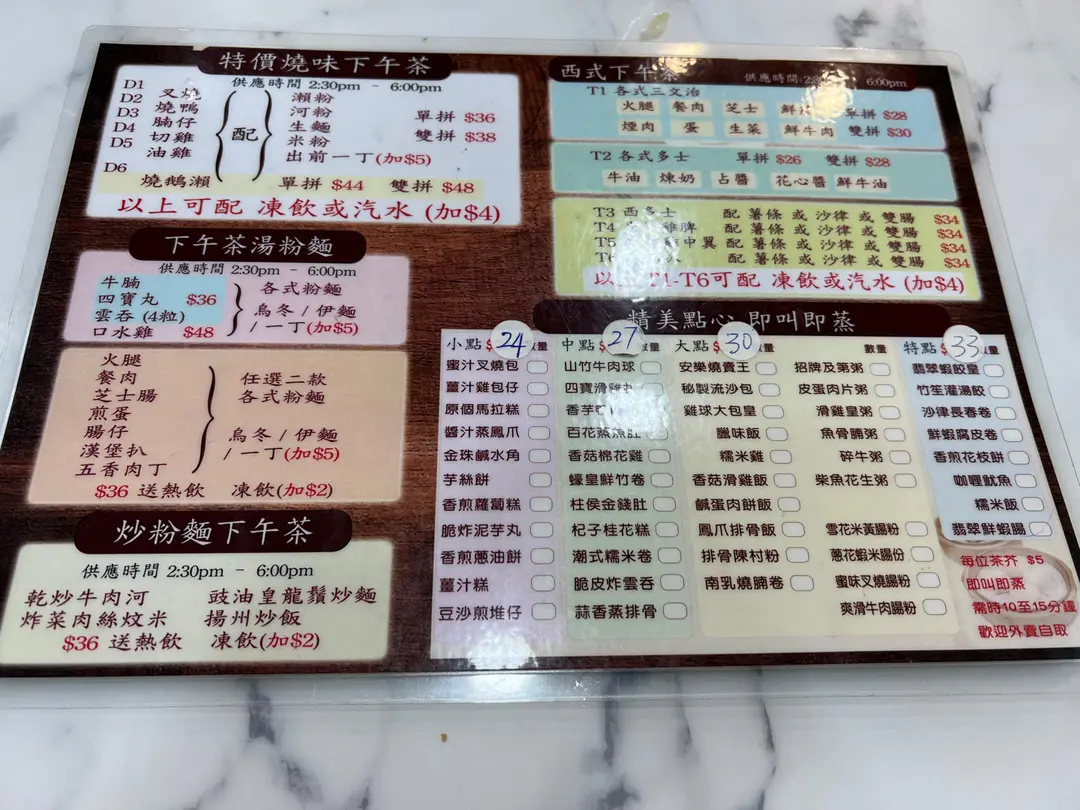 特價燒味下午茶
供應時間 2:30pm - 6:00pm
D1 叉燒
D2 燒鴨
D3 腩仔
D4 切雞
D5 油雞
配
瀨粉
河粉
生麵
米粉
出前一丁(加$5)
單拼 $36
雙拼 $38
D6 燒鵝瀨 單拼 $44 雙拼 $48
以上可配 凍飲或汽水 (加$4)
下午茶湯粉麵
供應時間 2:30pm - 6:00pm
牛腩
四寶丸
雲吞 (4粒)
$36
口水雞 $48
各式粉麵
烏冬 / 伊麵
/ 一丁(加$5)
火腿
餐肉
芝士腸
煎蛋
腸仔
漢堡扒
五香肉丁
任選二款
各式粉麵
烏冬 / 伊麵
/ 一丁(加$5)
$36 送熱飲 凍飲(加$2)
炒粉麵下午茶
供應時間 2:30pm - 6:00pm
乾炒牛肉河 豉油皇龍鬚炒麵
炸菜肉絲炆米 揚州炒飯
$36 送熱飲 凍飲(加$2)
西式下午茶
供應時間 6:00pm
T1 各式三文治
火腿 餐肉 芝士 單拼 $28
煙肉 蛋 生菜 鮮牛肉 雙拼 $30
T2 各式多士 單拼 $26 雙拼 $28
牛油 煉奶 占醬 花心醬 鮮牛油
T3 西多士 配 薯條 或 沙律 或 雙腸 $34
T4 雞髀 配 薯條 或 沙律 或 雙腸 $34
T5 中翼 配 薯條 或 沙律 或 雙腸 $34
配 薯條 或 沙律 或 雙腸 $34
以 T1-T6可配 凍飲或汽水 (加$4)
精美點心 即叫即蒸
小點 $ 24 數量
蜜汁叉燒包
薑汁雞包仔
原個馬拉糕
醬汁蒸鳳爪
金珠鹹水角
芋絲餅
香煎蘿蔔糕
脆炸泥芋丸
香煎蔥油餅
薑汁糕
豆沙煎堆仔
中點 $ 27 數量
山竹牛肉球
四寶滑雞
香芋
百花蒸魚肚
香菇棉花雞
蠔皇鮮竹卷
柱侯金錢肚
杞子桂花糕
潮式糯米卷
脆皮炸雲吞
蒜香蒸排骨
大點 $ 30 數量
安樂燒賣王
秘製流沙包
雞球大包皇
臘味飯
糯米雞
香菇滑雞飯
鹹蛋肉餅飯
鳳爪排骨飯
排骨陳村粉
南乳燒腩卷
數量
招牌及第粥
皮蛋肉片粥
滑雞皇粥
魚骨腩粥
碎牛粥
柴魚花生粥
雪花米黃腸粉
蔥花蝦米腸份
蜜味叉燒腸粉
爽滑牛肉腸粉
特點 33 數量
翡翠蝦餃皇
竹笙灌湯餃
沙律長春卷
鮮蝦腐皮卷
香煎花枝餅
咖喱魷魚
糯米飯
翡翠鮮蝦腸
每位茶芥 $5
即叫即蒸
需時10至15分鐘
歡迎外賣自取